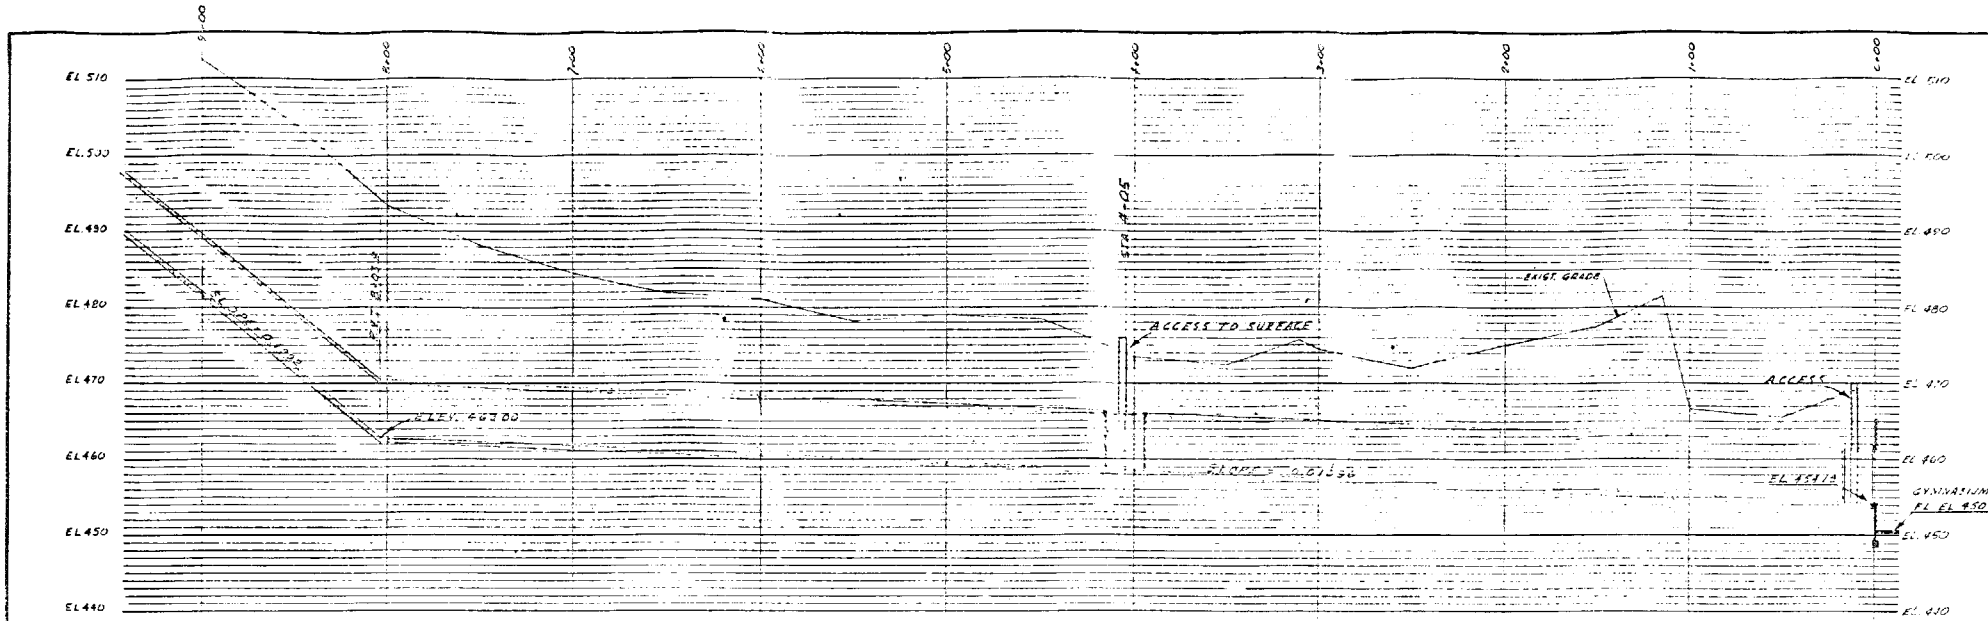 9+00
8+00
7+00
6+00
5+00
4+00
3+00
2+00
1+00
0+00
EL 510
EL 510
EL 500
EL 500
EL 490
EL 490
EL 480
EL 480
EL 470
EL 470
EL 460
EL 460
EL 450
EL 450
EL 440
EL 440
STA 4+05
EXIST. GRADE
ACCESS TO SURFACE
ACCESS
ELEV. 463.00
SLOPE =
GYMNASIUM
FL EL 450